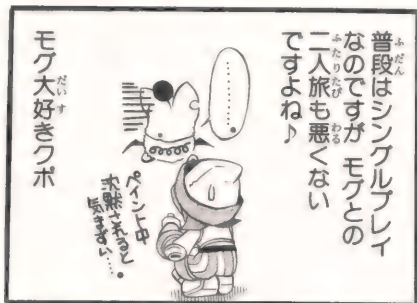 普段はシングルプレイ
なのですが モグとの
二人旅も悪くない
ですよね♪
………。
ペイント中
沈黙されると
気まずい…。
モグ大好きクポ